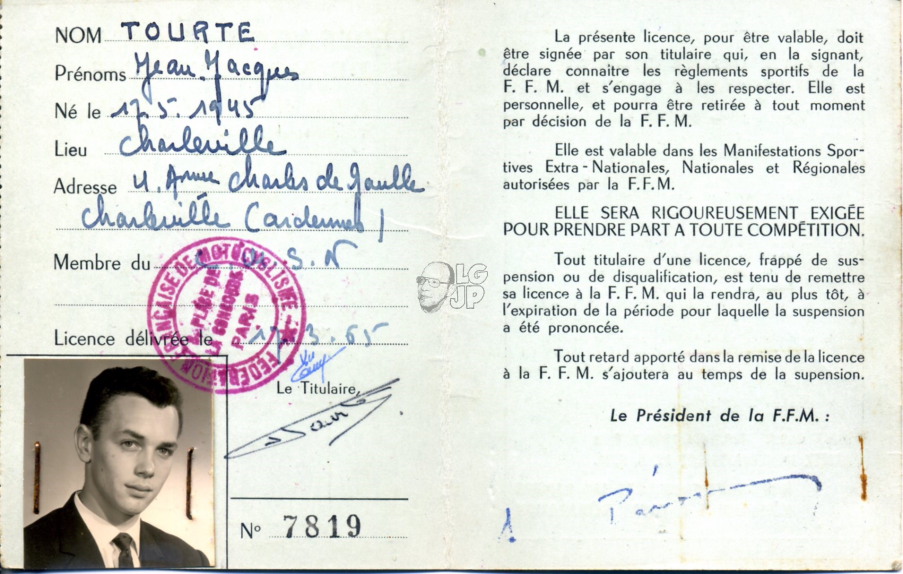 NOM TOURTE
Prénoms Jean-Jacques
Né le 17.5.1945
Lieu Charleville
Adresse Charles de Gaulle
Charleville (Ardennes)
Membre du S.N
Licence délivrée le 17.3.65
FEDERATION FRANÇAISE DE MOTOCYCLISME
PLACE DE
LA CONCORDE
PARIS
Le Titulaire,
No 7819
LG
JP
La présente licence, pour être valable, doit
être signée par son titulaire qui, en la signant,
déclare connaître les règlements sportifs de la
F. F. M. et s'engage à les respecter. Elle est
personnelle, et pourra être retirée à tout moment
par décision de la F. F. M.
Elle est valable dans les Manifestations Spor-
tives Extra-Nationales, Nationales et Régionales
autorisées par la F.F.M.
ELLE SERA RIGOUREUSEMENT EXIGÉE
POUR PRENDRE PART A TOUTE COMPÉTITION.
Tout titulaire d'une licence, frappé de sus-
pension ou de disqualification, est tenu de remettre
sa licence à la F. F. M. qui la rendra, au plus tôt, à
l'expiration de la période pour laquelle la suspension
a été prononcée.
Tout retard apporté dans la remise de la licence
à la F. F. M. s'ajoutera au temps de la supension.
Le Président de la F.F.M. :